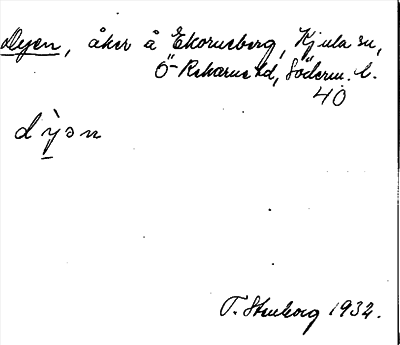 Dyen, åker å Ekornsberg, Kjula sn,
Ö-Rekarne hd, Söderm. l.
40
dỳən
T. Stenborg 1932.